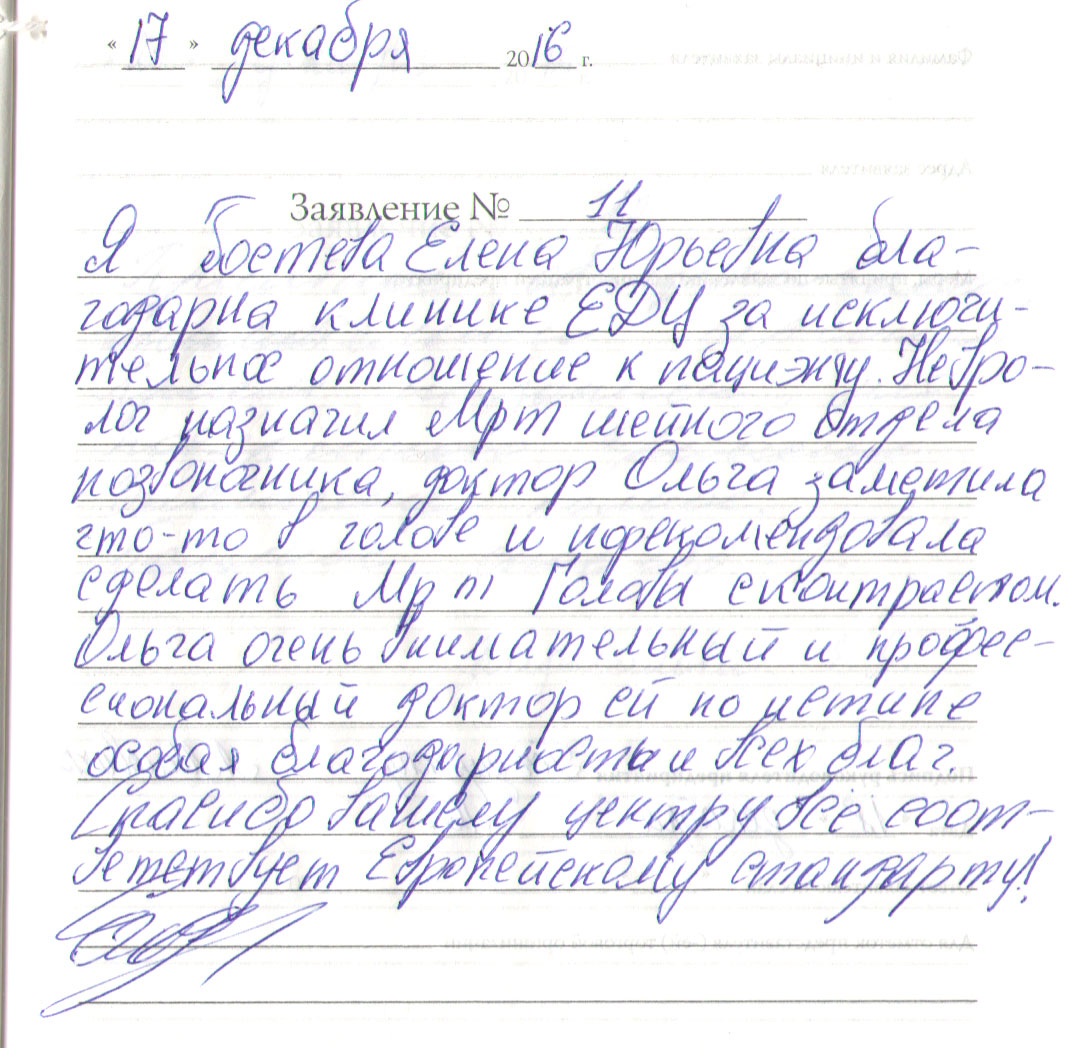 « 17 » декабря 2016 г.
Заявление № 11
Я Бостева Елена Юрьевна бла-
годарна клинике ЕДЦ за исключи-
тельное отношение к пациэнту. Невро-
лог назначил Мрт шейного отдела
позвоночника, доктор Ольга заметила
что-то в голове и порекомендовала
сделать Мрт Головы с контрастом.
Ольга очень внимательный и профес-
сиональный доктор ей по истине
особая благодарность и всех благ.
Спасибо вашему центру всё соот-
ветствует Европейскому стандарту!